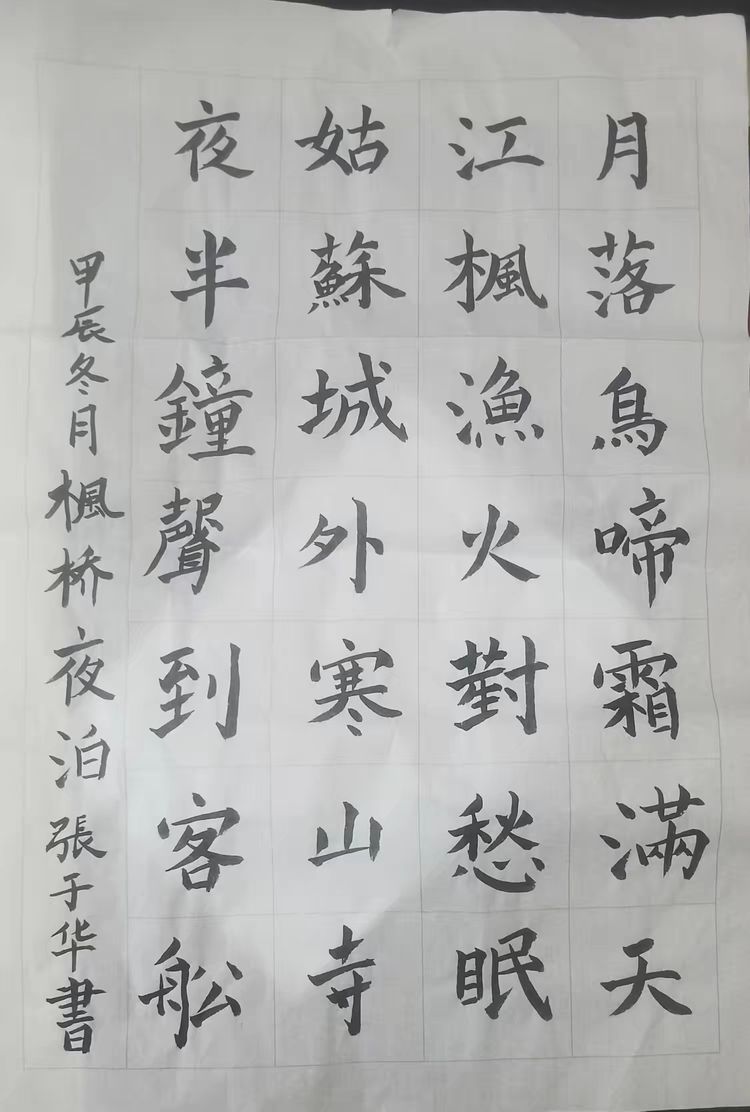 月落烏啼霜滿天
江楓漁火對愁眠
姑蘇城外寒山寺
夜半鐘聲到客舩
甲辰冬月楓桥夜泊張于华書